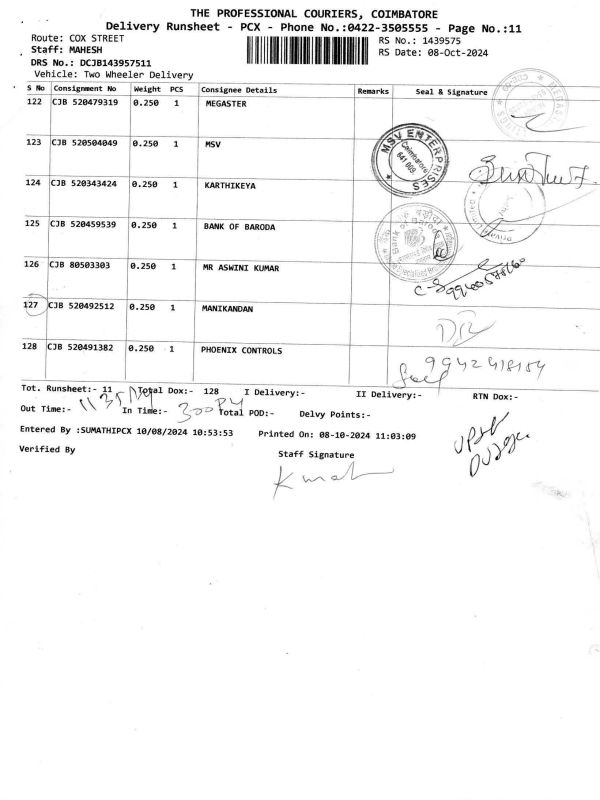 THE PROFESSIONAL COURIERS, COIMBATORE
Delivery Runsheet - PCX - Phone No.:0422-3505555 - Page No.:11
Route: COX STREET RS No.: 1439575
Staff: MAHESH RS Date: 08-Oct-2024
DRS No.: DCJB143957511
Vehicle: Two Wheeler Delivery
S No Consignment No Weight PCS Consignee Details Remarks Seal & Signature
122 CJB 520479319 0.250 1 MEGASTER
123 CJB 520504049 0.250 1 MSV
MSV ENTERPRISES
Coimbatore
641 009
124 CJB 520343424 0.250 1 KARTHIKEYA
125 CJB 520459539 0.250 1 BANK OF BARODA
Bank of Baroda
126 CJB 80503303 0.250 1 MR ASWINI KUMAR
127 CJB 520492512 0.250 1 MANIKANDAN
128 CJB 520491382 0.250 1 PHOENIX CONTROLS
Tot. Runsheet:- 11 Total Dox:- 128 I Delivery:- II Delivery:- RTN Dox:-
Out Time:- In Time:- Total POD:- Delvy Points:-
Entered By :SUMATHIPCX 10/08/2024 10:53:53 Printed On: 08-10-2024 11:03:09
Verified By Staff Signature